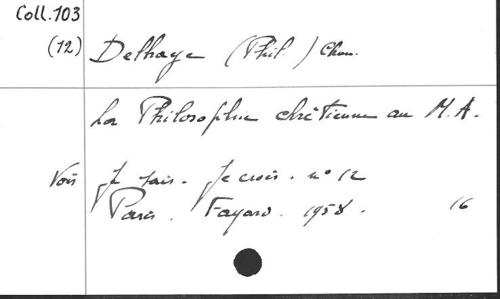 Coll. 103
(12) Delhaye (Phil.) Chan.
La Philosophie chrétienne au M.A.
Voir Je sais. Je crois. nº 12
Paris. Fayard. 1958. 16